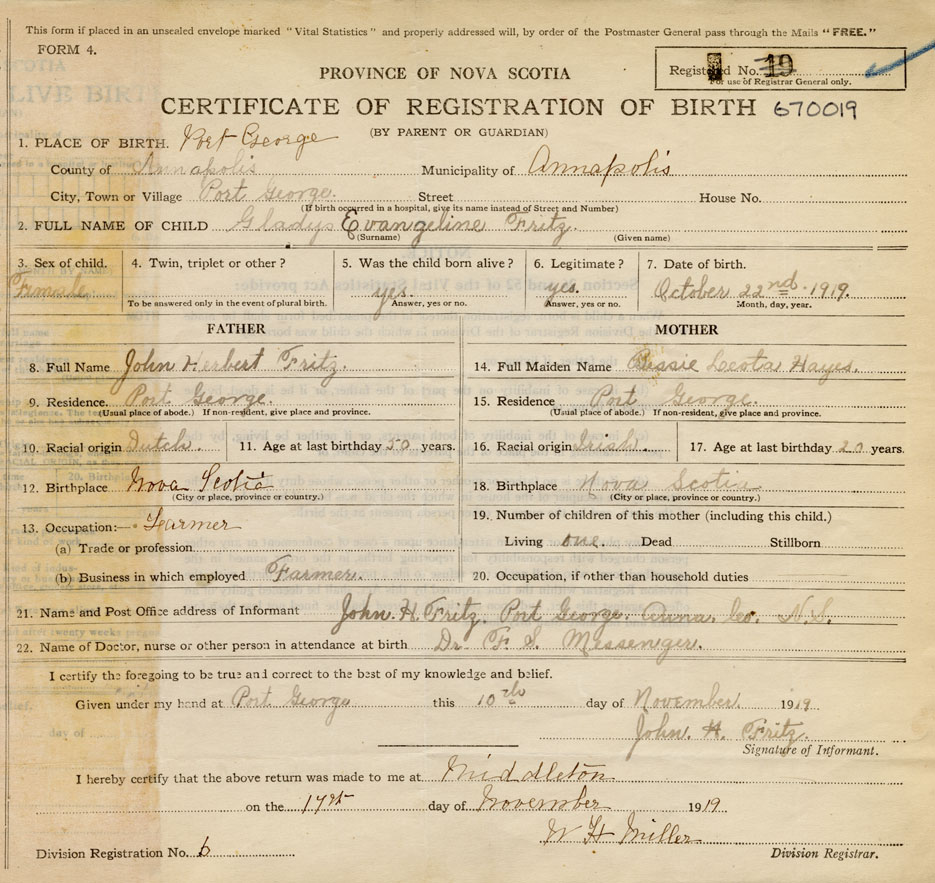 This form if placed in an unsealed envelope marked "Vital Statistics" and properly addressed will, by order of the Postmaster General pass through the Mails "FREE."
FORM 4.
Registered No. 19
For use of Registrar General only.
PROVINCE OF NOVA SCOTIA
CERTIFICATE OF REGISTRATION OF BIRTH 670019
(BY PARENT OR GUARDIAN)
1. PLACE OF BIRTH. Port George
County of Annapolis Municipality of Annapolis
City, Town or Village Port George Street House No.
(If birth occurred in a hospital, give its name instead of Street and Number)
2. FULL NAME OF CHILD Gladys Evangeline Fritz.
(Surname) (Given name)
3. Sex of child. 4. Twin, triplet or other ? 5. Was the child born alive ? 6. Legitimate ? 7. Date of birth.
Female yes. yes. October 22nd 1919.
To be answered only in the event of plural birth. Answer, yes or no. Answer, yes or no. Month, day, year.
FATHER MOTHER
8. Full Name John Herbert Fritz. 14. Full Maiden Name Bessie Leota Hayes.
9. Residence. Port George. 15. Residence Port George.
(Usual place of abode.) If non-resident, give place and province. (Usual place of abode.) If non-resident, give place and province.
10. Racial origin Dutch. 11. Age at last birthday 50 years. 16. Racial origin Irish. 17. Age at last birthday 20 years.
12. Birthplace Nova Scotia 18. Birthplace Nova Scotia
(City or place, province or country.) (City or place, province or country.)
13. Occupation:— Farmer 19. Number of children of this mother (including this child.)
(a) Trade or profession Living one. Dead Stillborn
(b) Business in which employed Farmer. 20. Occupation, if other than household duties
21. Name and Post Office address of Informant John. H. Fritz. Port George. Anna. Co. N.S.
22. Name of Doctor, nurse or other person in attendance at birth Dr. F. S. Messenger.
I certify the foregoing to be true and correct to the best of my knowledge and belief.
Given under my hand at Port George this 10th day of November. 1919
John. H. Fritz.
Signature of Informant.
I hereby certify that the above return was made to me at Middleton
on the 17th day of November 1919
W H Miller
Division Registration No. 6 Division Registrar.